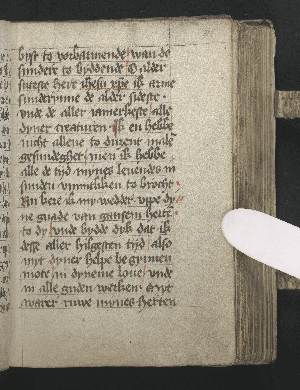 byst to vorbarmende wan de
sundere to byddende O alder
suteste here ihesu xpe ik arme
sunderynne de alder sideste
unde de aller iamerkeste alle
dyner creaturen ik en hebbe
nicht allene to dusent male
gesundeghet men ik hebbe
alle de tijd mynes levendes in
sunden unnutliken to brocht
Nu kere ik my wedder uppe dy
ne gnade van ganseme herte
to dy unde bydde dyk dat ik
desse aller hilgesten tijd also
myt dyner helpe begynnen
mote in dyneme love unde
in alle guden werken myt
warer ruwe mynes herten